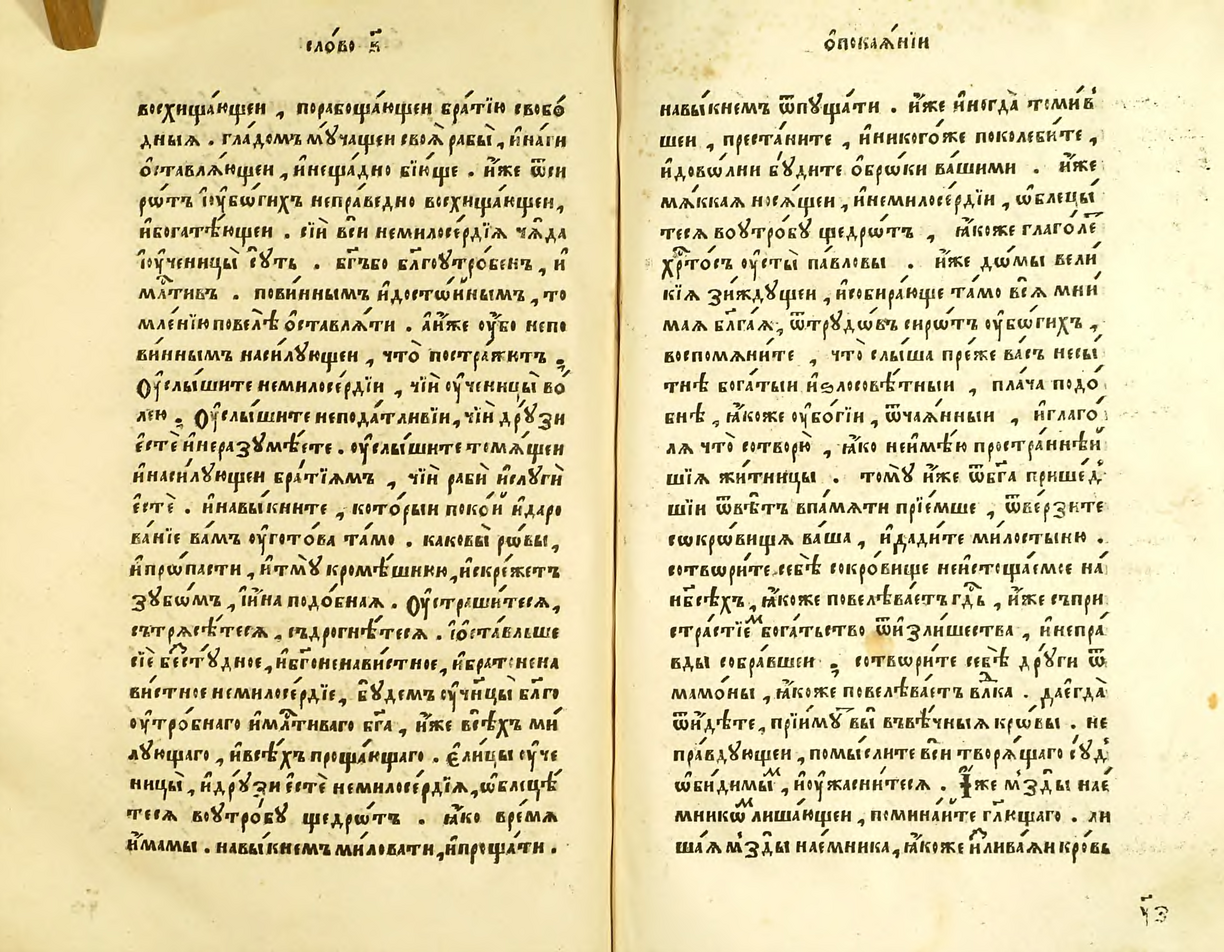 сло́во к҃
восхища́ющеи , порабоща́ющеи бра́тїю свобо́
дныѧ . гла́домъ мꙋ́чащеи своѧ̀ рабы̀ , и҆на́ги
ѡ҆ставлѧ́ющеи , и҆неща́дно бїю́ще . и҆́же ѿси
рѡ́тъ и҆оу҆бѡ́гихъ непра́ведно восхища́ющеи ,
и҆богатѣ́ющеи . сїѝ всѝ немилосе́рдїѧ ча̑да
и҆оу҆ченицы̀ сꙋ́ть . бг҃ъбо бл҃гоꙋтро́бенъ , и҆
мл҃тивъ . пови́ннымъ и҆досто́йнымъ , то
мле́нїю повелѣ̀ ѡ҆ставлѧ́ти . а҆и҆́же оу҆́бо непо
ви́ннымъ наси́лꙋющеи , что̀ постра́жꙋтъ .
Оу҆слы́шите немилосе́рдїи , чїѝ оу҆ченицы̀ во́
лею . Оу҆слы́шите неподатли́вїи , чїѝ дрꙋ́зи
є҆стѐ и҆неразꙋмѣ́ете . оу҆слы́шите томѧ́щеи
и҆наси́лꙋющеи бра́тїѧмъ , чїѝ рабѝ и҆слꙋгѝ
є҆стѐ . и҆навы́кните , кото́рыи поко́й и҆даро
ва́нїе ва́мъ оу҆гото́ва та́мо . каковы̀ рѡ́вы ,
и҆прѡ́пасти , и҆тмꙋ̀ кромѣ́шнюю , и҆скре́жетъ
зꙋбѡ́мъ , и҆и҆на подо́бнаѧ . Оу҆страши́тесѧ ,
сътрѧсѣ́тесѧ , съдрогнѣ́тесѧ . и҆ѡ҆ста́вльше
сїѐ бесстꙋ́дное , и҆бг҃оненави́стное , и҆братонена
ви́стное немилосе́рдїе , бꙋ́демъ оу҆чн҃цы̀ бл҃го
оу҆тро́бнаго и҆мл҃тиваго бг҃а , и҆́же всѣ́хъ ми́
лꙋющаго , и҆всѣ́хъ проща́ющаго . є҆ли́цы оу҆че
ницы̀ , и҆дрꙋ́зи є҆стѐ немилосе́рдїѧ , ѡ҆блецѣ́
тесѧ воꙋтро́бꙋ щедро́тъ . ꙗ҆́ко вре́мѧ
и҆́мамы . навы́кнемъ ми́ловати , и҆проща́ти .
ѡ҆покаѧ́нїи
навы́кнемъ ѿпꙋща́ти . и҆́же и҆ногда̀ томи́в
шеи , преста́ните , и҆никого́же поколеби́те ,
и҆дово́лни бꙋ́дите ѡ҆брѡ́ки ва́шими . и҆́же
мѧ́ккаѧ носѧ́щеи , и҆немилосе́рдїи , ѡ҆блецы́
тесѧ воꙋтро́бꙋ щедрѡ́тъ , ꙗ҆́коже глаго́ле
хр҃то́съ оу҆сты̀ па́вловы . и҆́же до́мы вели́
кїѧ зи́ждꙋщеи , и҆собира́юще та́мо всѧ̀ мни́
маѧ бл҃га́ѧ , ѿтрꙋдѡ́въ сирѡ́тъ оу҆бѡ́гихъ ,
воспомѧни́те , что̀ слы́ша пре́же ва́съ несы́
тнѣ бога́тыи и҆ѕлосовѣ́тныи , пла́ча подо́
бнѣ , ꙗ҆́коже оу҆бо́гїи , ѿча́ѧнныи , и҆глаго́
лѧ что̀ сотворю̀ , ꙗ҆́ко неи҆мѣ́ю простра́ннѣй
шїѧ жи́тницы . томꙋ̀ и҆́же ѿбг҃а прише́д
шїи ѿвѣ́тъ впа́мѧти прїе́мше , ѿве́рзите
сокрѡ́вища ва́ша , и҆дади́те ми́лостыню .
сотвори́те себѣ̀ сокро́вище неи҆стоща́емое на́
нб҃сѣ́хъ , ꙗ҆́коже повелѣва́етъ гд҃ь , и҆́же съпри
стра́стїемъ бога́тьство ѿи҆зли́шества , и҆непра́
вды собра́вшеи , сотвори́те себѣ̀ дрꙋ́ги ѿ
мамо́ны , ꙗ҆́коже повелѣва́етъ вл҃ка . даегда̀
ѿи҆́дѣте , прїи́мꙋ вы̀ въвѣ́чныѧ кро́вы . не
пра́вдꙋющеи , помы́слите всѝ творѧ́щаго сꙋ́дъ
ѡ҆би́димымъ , и҆оу҆жасни́тесѧ . И҆́же мзды̀ нае́
мникѡмъ лиша́ющеи , помина́йте гл҃ющаго . ли
ша́ѧ мзды̀ нае́мника , ꙗ҆́коже и҆злива́ѧи кро́вь
н҃з